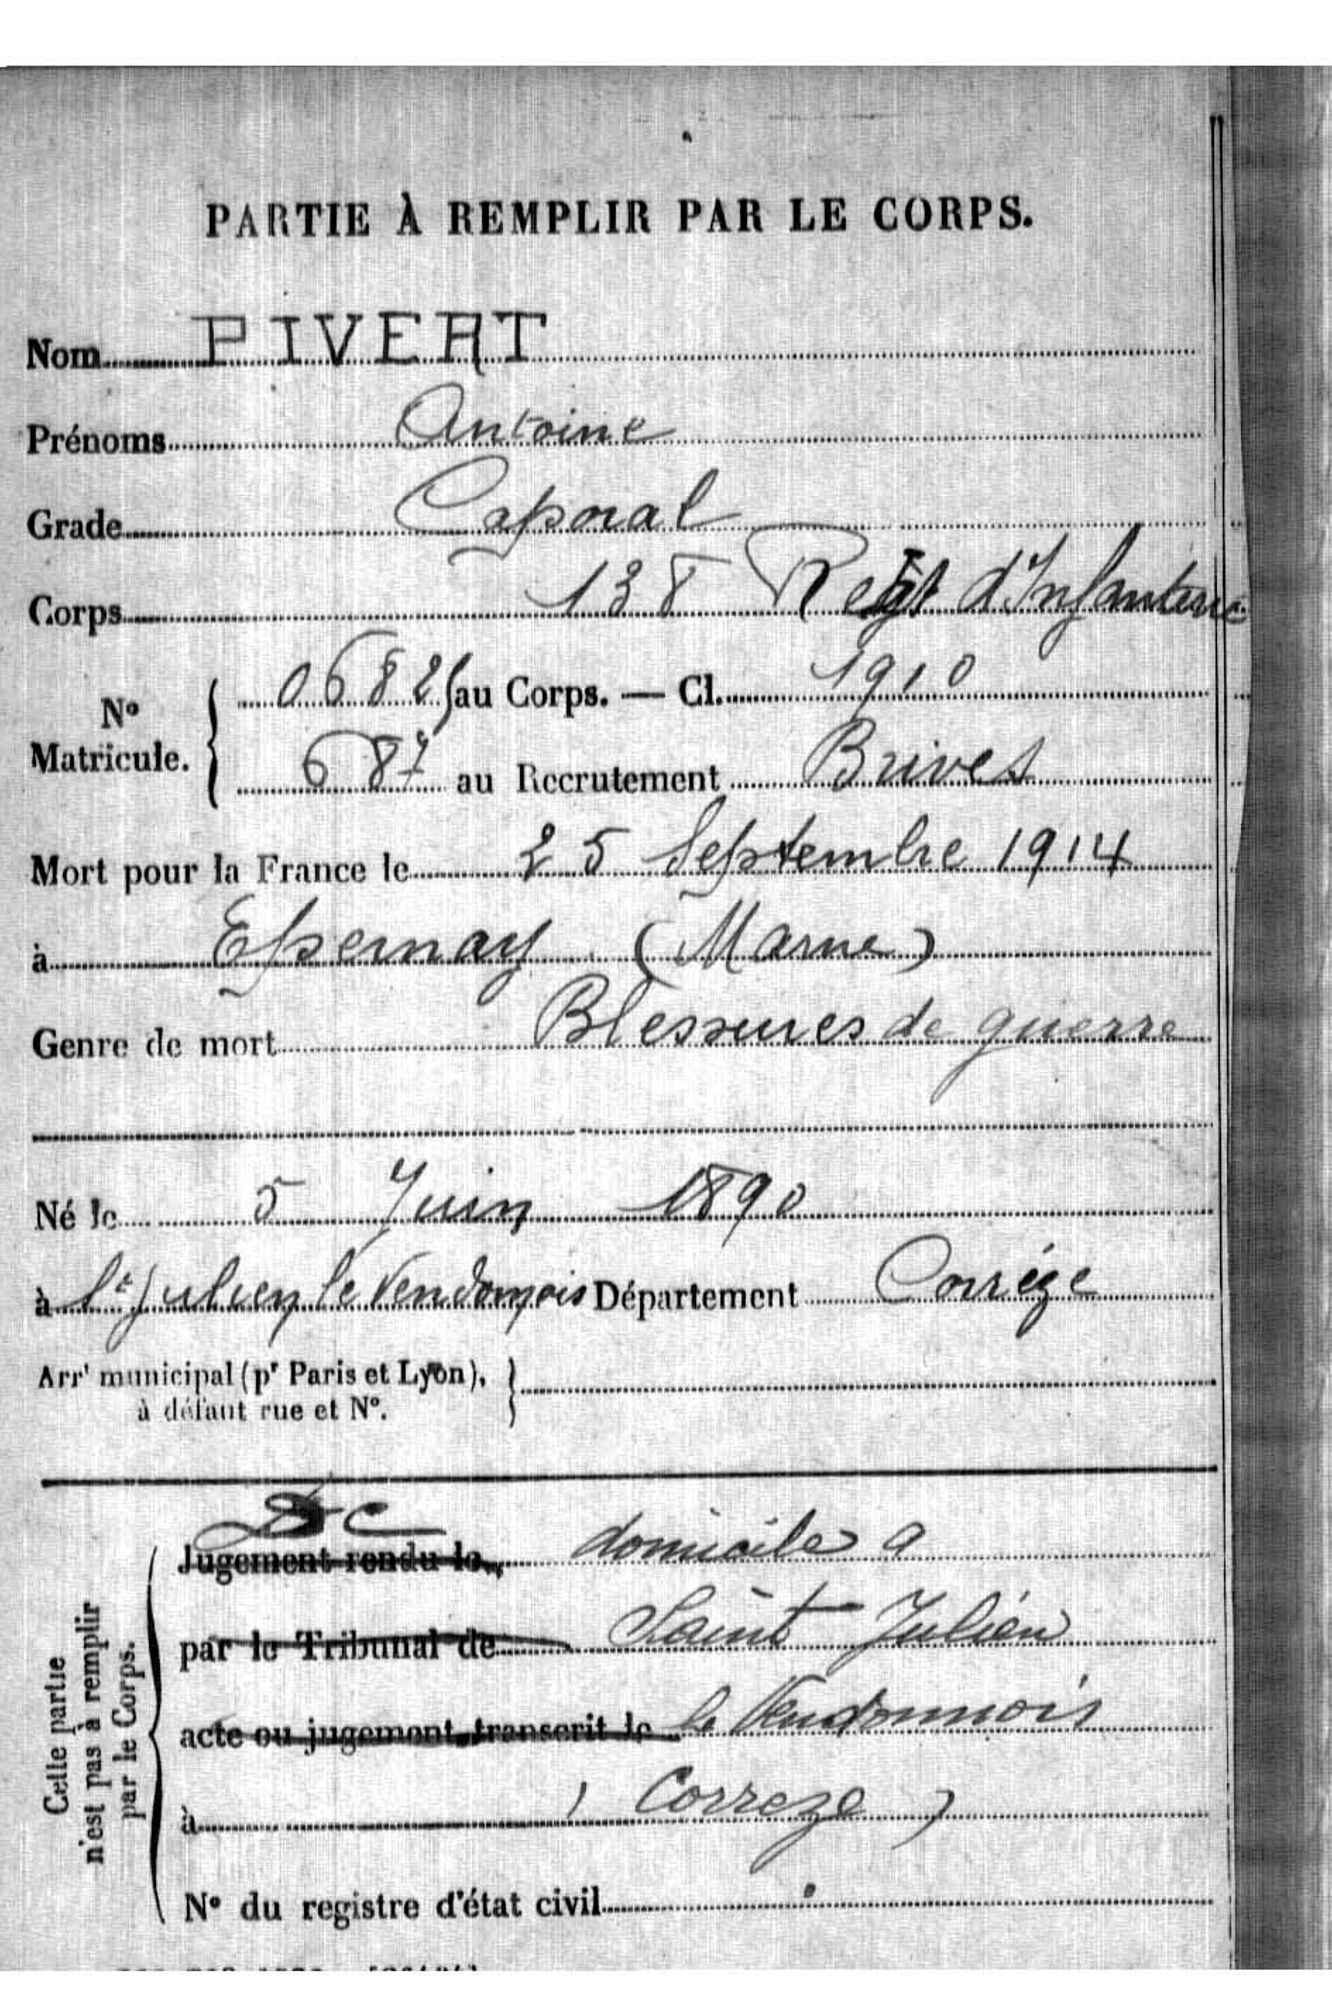 PARTIE À REMPLIR PAR LE CORPS.
Nom PIVERT
Prénoms Antoine
Grade Caporal
Corps 138 Regt d'Infanterie
N° Matricule. { 0682 au Corps. — Cl. 1910
687 au Recrutement Brives
Mort pour la France le 25 Septembre 1914
à Epernay (Marne)
Genre de mort Blessures de guerre
Né le 5 Juin 1890
à St Julien le Vendomois Département Corrèze
Arrt municipal (pr Paris et Lyon), à défaut rue et N°. }
Cette partie n'est pas à remplir par le Corps.
DC
Jugement rendu le domicile a
par le Tribunal de Saint Julien
acte ou jugement transcrit le le Vendomois
à ( Correze )
N° du registre d'état civil